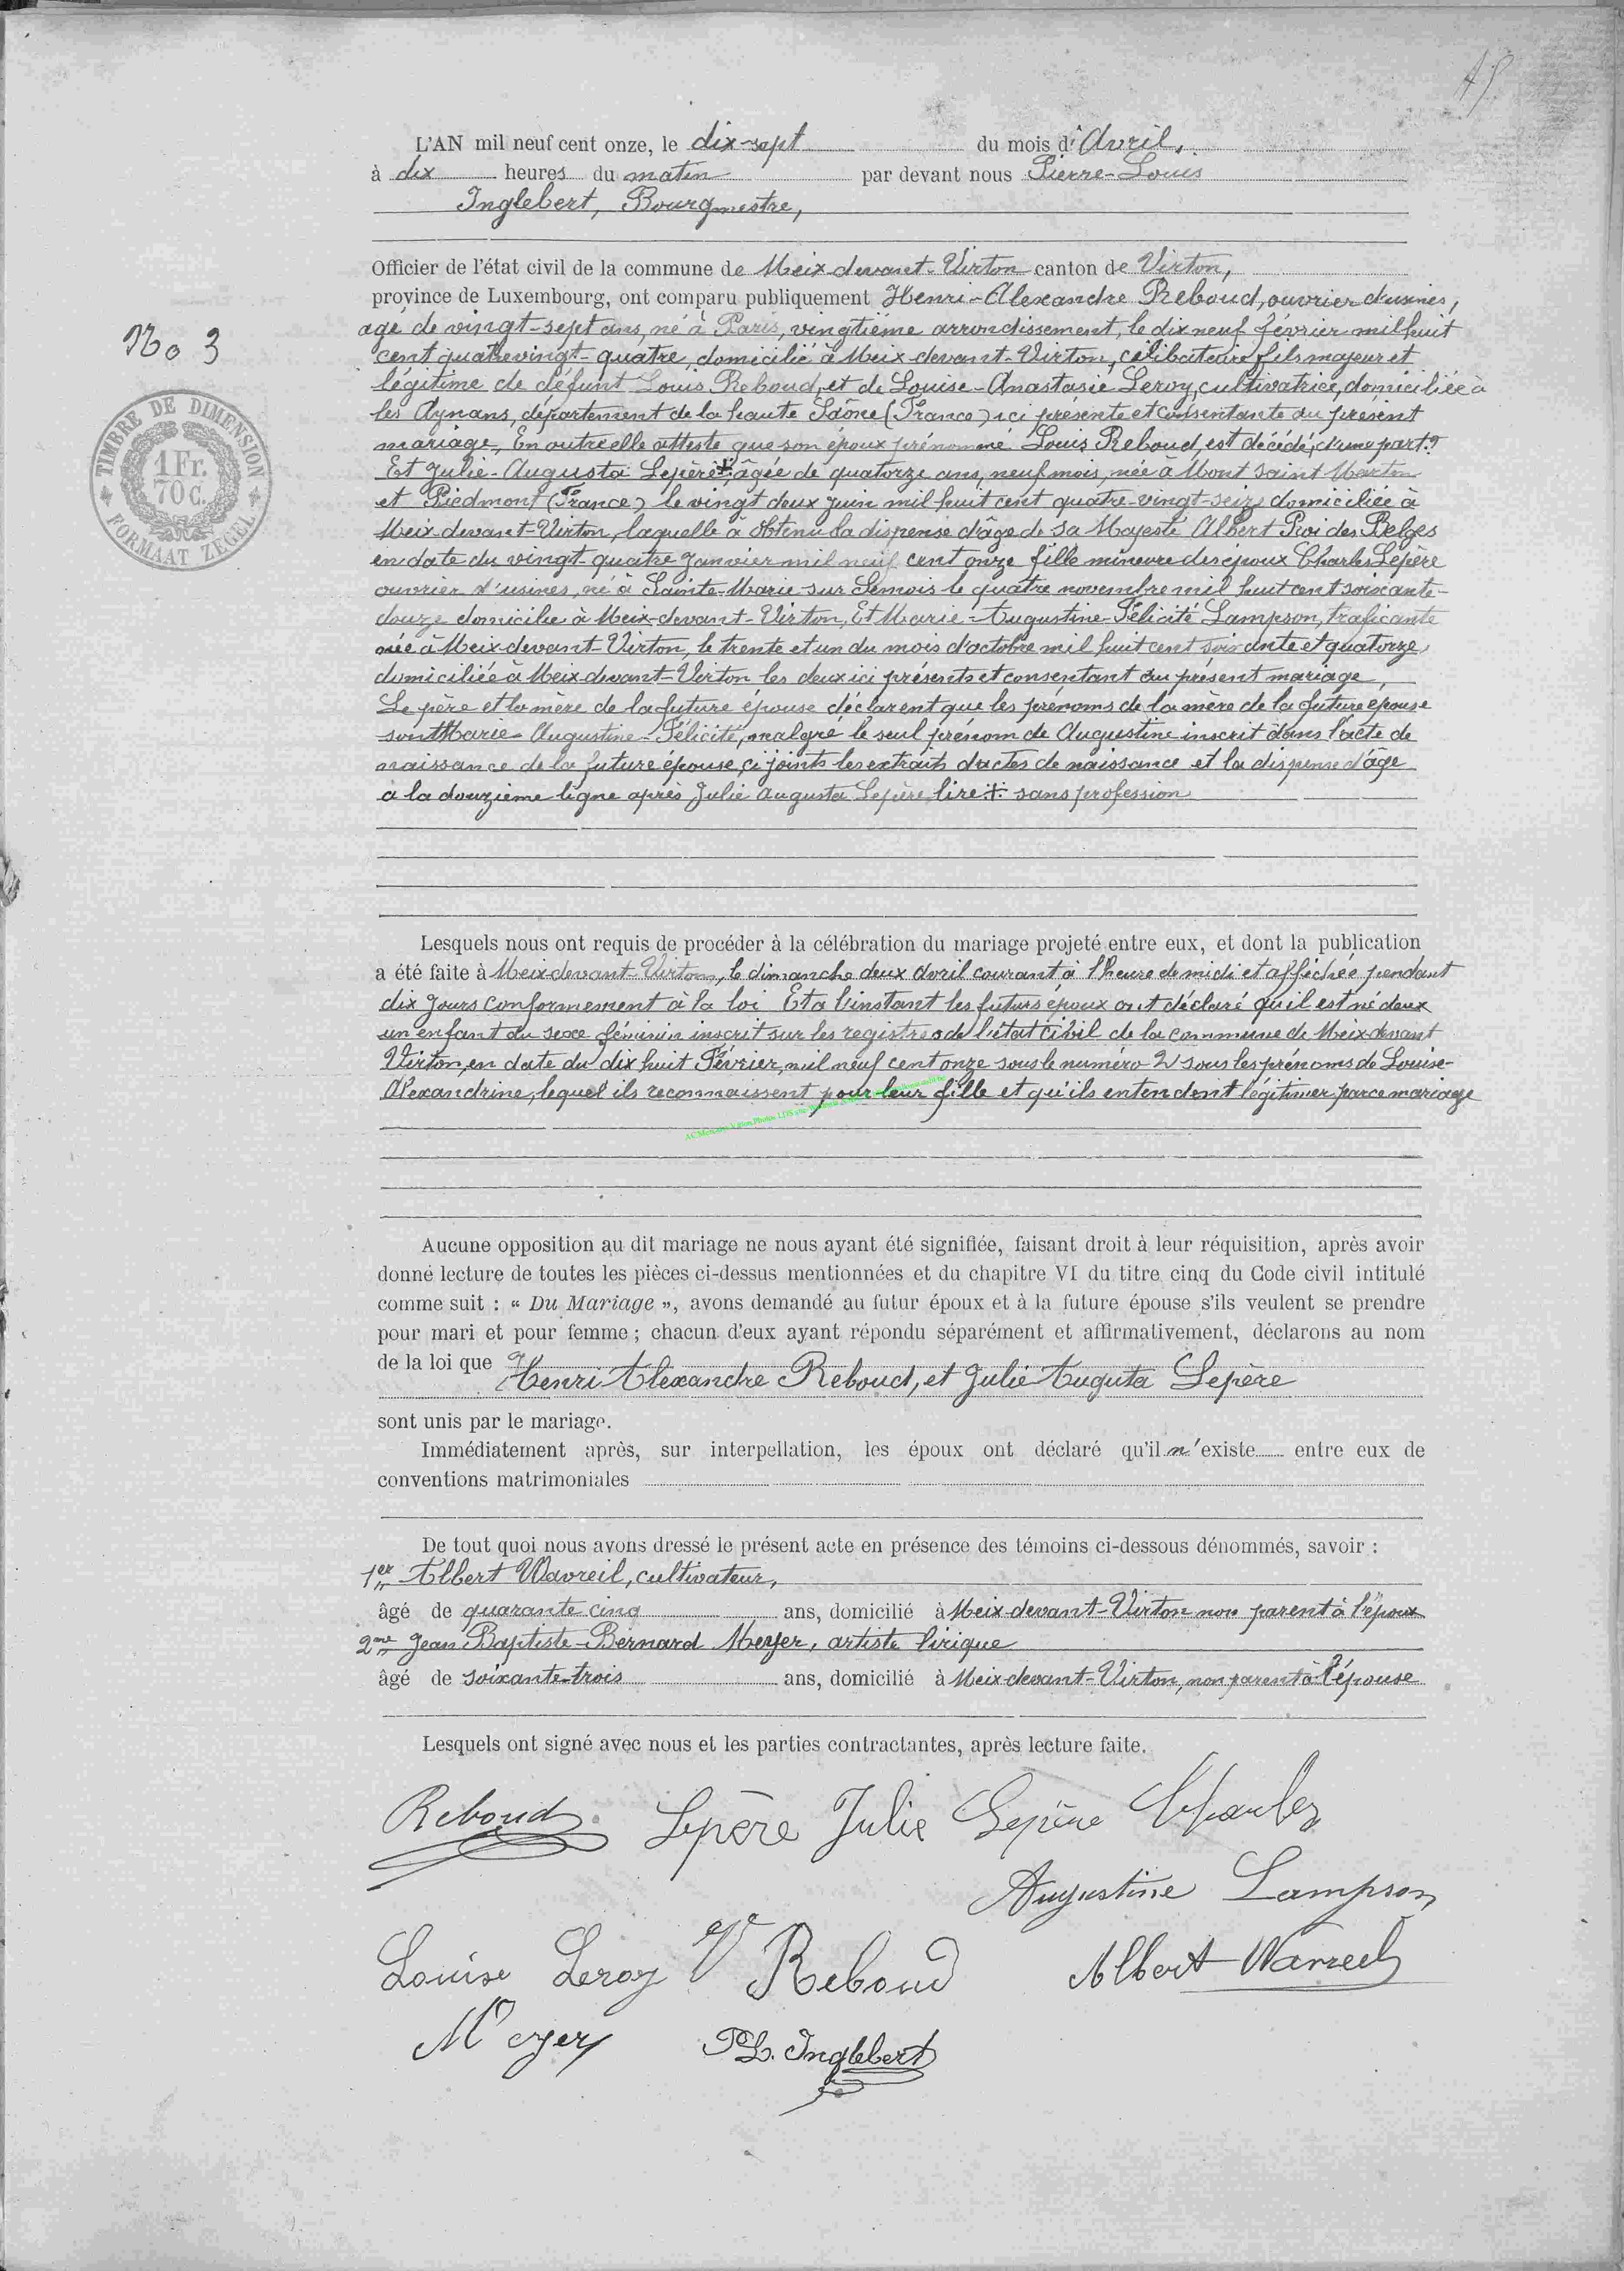 45
L'AN mil neuf cent onze, le dix-sept du mois d'Avril,
à dix heures du matin par devant nous Pierre-Louis
Inglebert, Bourgmestre,
Officier de l'état civil de la commune de Meix-devant-Virton canton de Virton,
province de Luxembourg, ont comparu publiquement Henri-Alexandre Reboud, ouvrier d'usines,
No 3
agé de vingt-sept ans, né à Paris, vingtième arrondissement, le dix neuf février mil huit
cent quatre vingt-quatre, domicilié à Meix-devant-Virton, célibataire fils majeur et
légitime de défunt Louis Reboud, et de Louise-Anastasie Leroy, cultivatrice, domiciliée à
les Aynans, département de la haute Saône (France) ici présente et consentante au présent
mariage, En outre elle atteste que son époux prénommé Louis Reboud, est décédé, d'une part.
Et Julie-Augusta Lepère ‡, âgée de quatorze ans, neuf mois, née à Mont Saint Martin
et Piedmont (France) le vingt deux juin mil huit cent quatre-vingt-seize domiciliée à
Meix devant-Virton, laquelle à obtenu la dispense d'âge de Sa Majesté Albert Roi des Belges
en date du vingt-quatre Janvier mil neuf cent onze fille mineure des époux Charles Lepère
ouvrier d'usines, né à Sainte-Marie sur Semois le quatre novembre mil huit cent soixante-
douze domicilié à Meix-devant-Virton, Et Marie-Augustine-Félicité Lampson, traficante
née à Meix-devant-Virton, le trente et un du mois d'octobre mil huit cent soixante et quatorze,
domiciliée à Meix-devant-Virton les deux ici présents et consentant au présent mariage,
Le père et la mère de la future épouse déclarent que les prénoms de la mère de la future épouse
sont Marie-Augustine-Félicité, malgré le seul prénom de Augustine inscrit dans l'acte de
naissance de la future épouse, ci joints les extraits d'actes de naissance et la dispense d'âge
a la douzième ligne après Julie Augusta Lepère, lire ‡ sans profession
TIMBRE DE DIMENSION
1 Fr.
70 C.
FORMAAT ZEGEL
Lesquels nous ont requis de procéder à la célébration du mariage projeté entre eux, et dont la publication
a été faite à Meix-devant-Virton, le dimanche deux Avril courant à l'heure de midi et affichée pendant
dix jours conformement à la loi Et a l'instant les futurs époux ont déclaré qu'il est né deux
un enfant du sexe féminin inscrit sur les registres de l'état civil de la commune de Meix-devant
Virton, en date du dix huit Février, mil neuf cent onze sous le numéro 2 sous les prénoms de Louise-
Alexandrine, lequel ils reconnaissent pour leur fille et qu'ils entendent légitimer par ce mariage
Aucune opposition au dit mariage ne nous ayant été signifiée, faisant droit à leur réquisition, après avoir
donné lecture de toutes les pièces ci-dessus mentionnées et du chapitre VI du titre cinq du Code civil intitulé
comme suit : « Du Mariage », avons demandé au futur époux et à la future épouse s'ils veulent se prendre
pour mari et pour femme ; chacun d'eux ayant répondu séparément et affirmativement, déclarons au nom
de la loi que
Henri Alexandre Reboud, et Julie Auguta Lepère
sont unis par le mariage.
Immédiatement après, sur interpellation, les époux ont déclaré qu'il n'existe entre eux de
conventions matrimoniales
De tout quoi nous avons dressé le présent acte en présence des témoins ci-dessous dénommés, savoir :
1er Albert Wavreil, cultivateur,
âgé de quarante cinq ans, domicilié à Meix-devant-Virton non parent à l'époux
2me Jean Baptiste-Bernard Meyer, artiste lirique
âgé de soixante-trois ans, domicilié à Meix-devant-Virton, non parent à l'épouse
Lesquels ont signé avec nous et les parties contractantes, après lecture faite.
Reboud Lepère Julie Lepère Charles
Augustine Lampson
Louise Leroy Ve Reboud Albert Wavreil
Meyer PL. Inglebert